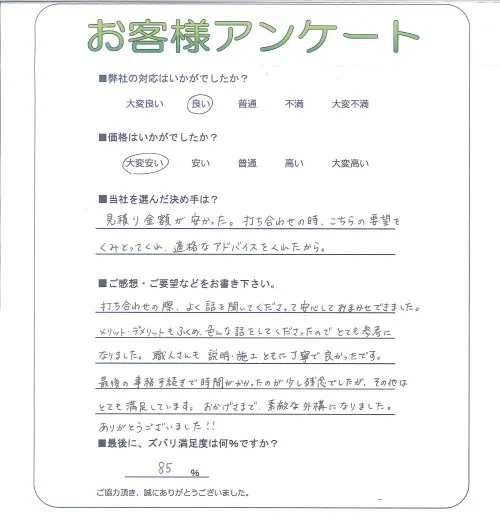 お客様アンケート
■弊社の対応はいかがでしたか？
大変良い 良い 普通 不満 大変不満
■価格はいかがでしたか？
大変安い 安い 普通 高い 大変高い
■当社を選んだ決め手は？
見積り金額が安かった。打ち合わせの時、こちらの要望を
くみとってくれ、適格なアドバイスをくれたから。
■ご感想・ご要望などをお書き下さい。
打ち合わせの際、よく話を聞いてくださって安心しておまかせできました。
メリット・デメリットもふくめ、色んな話をしてくださったのでとても参考に
なりました。職人さんも説明・施工ともに丁寧で良かったです。
最後の事務手続きで時間がかかったのが少し残念でしたが、その他は
とても満足しています。おかげさまで、素敵な外構になりました。
ありがとうございました!!
■最後に、ズバリ満足度は何%ですか？
85 %
ご協力頂き、誠にありがとうございました。